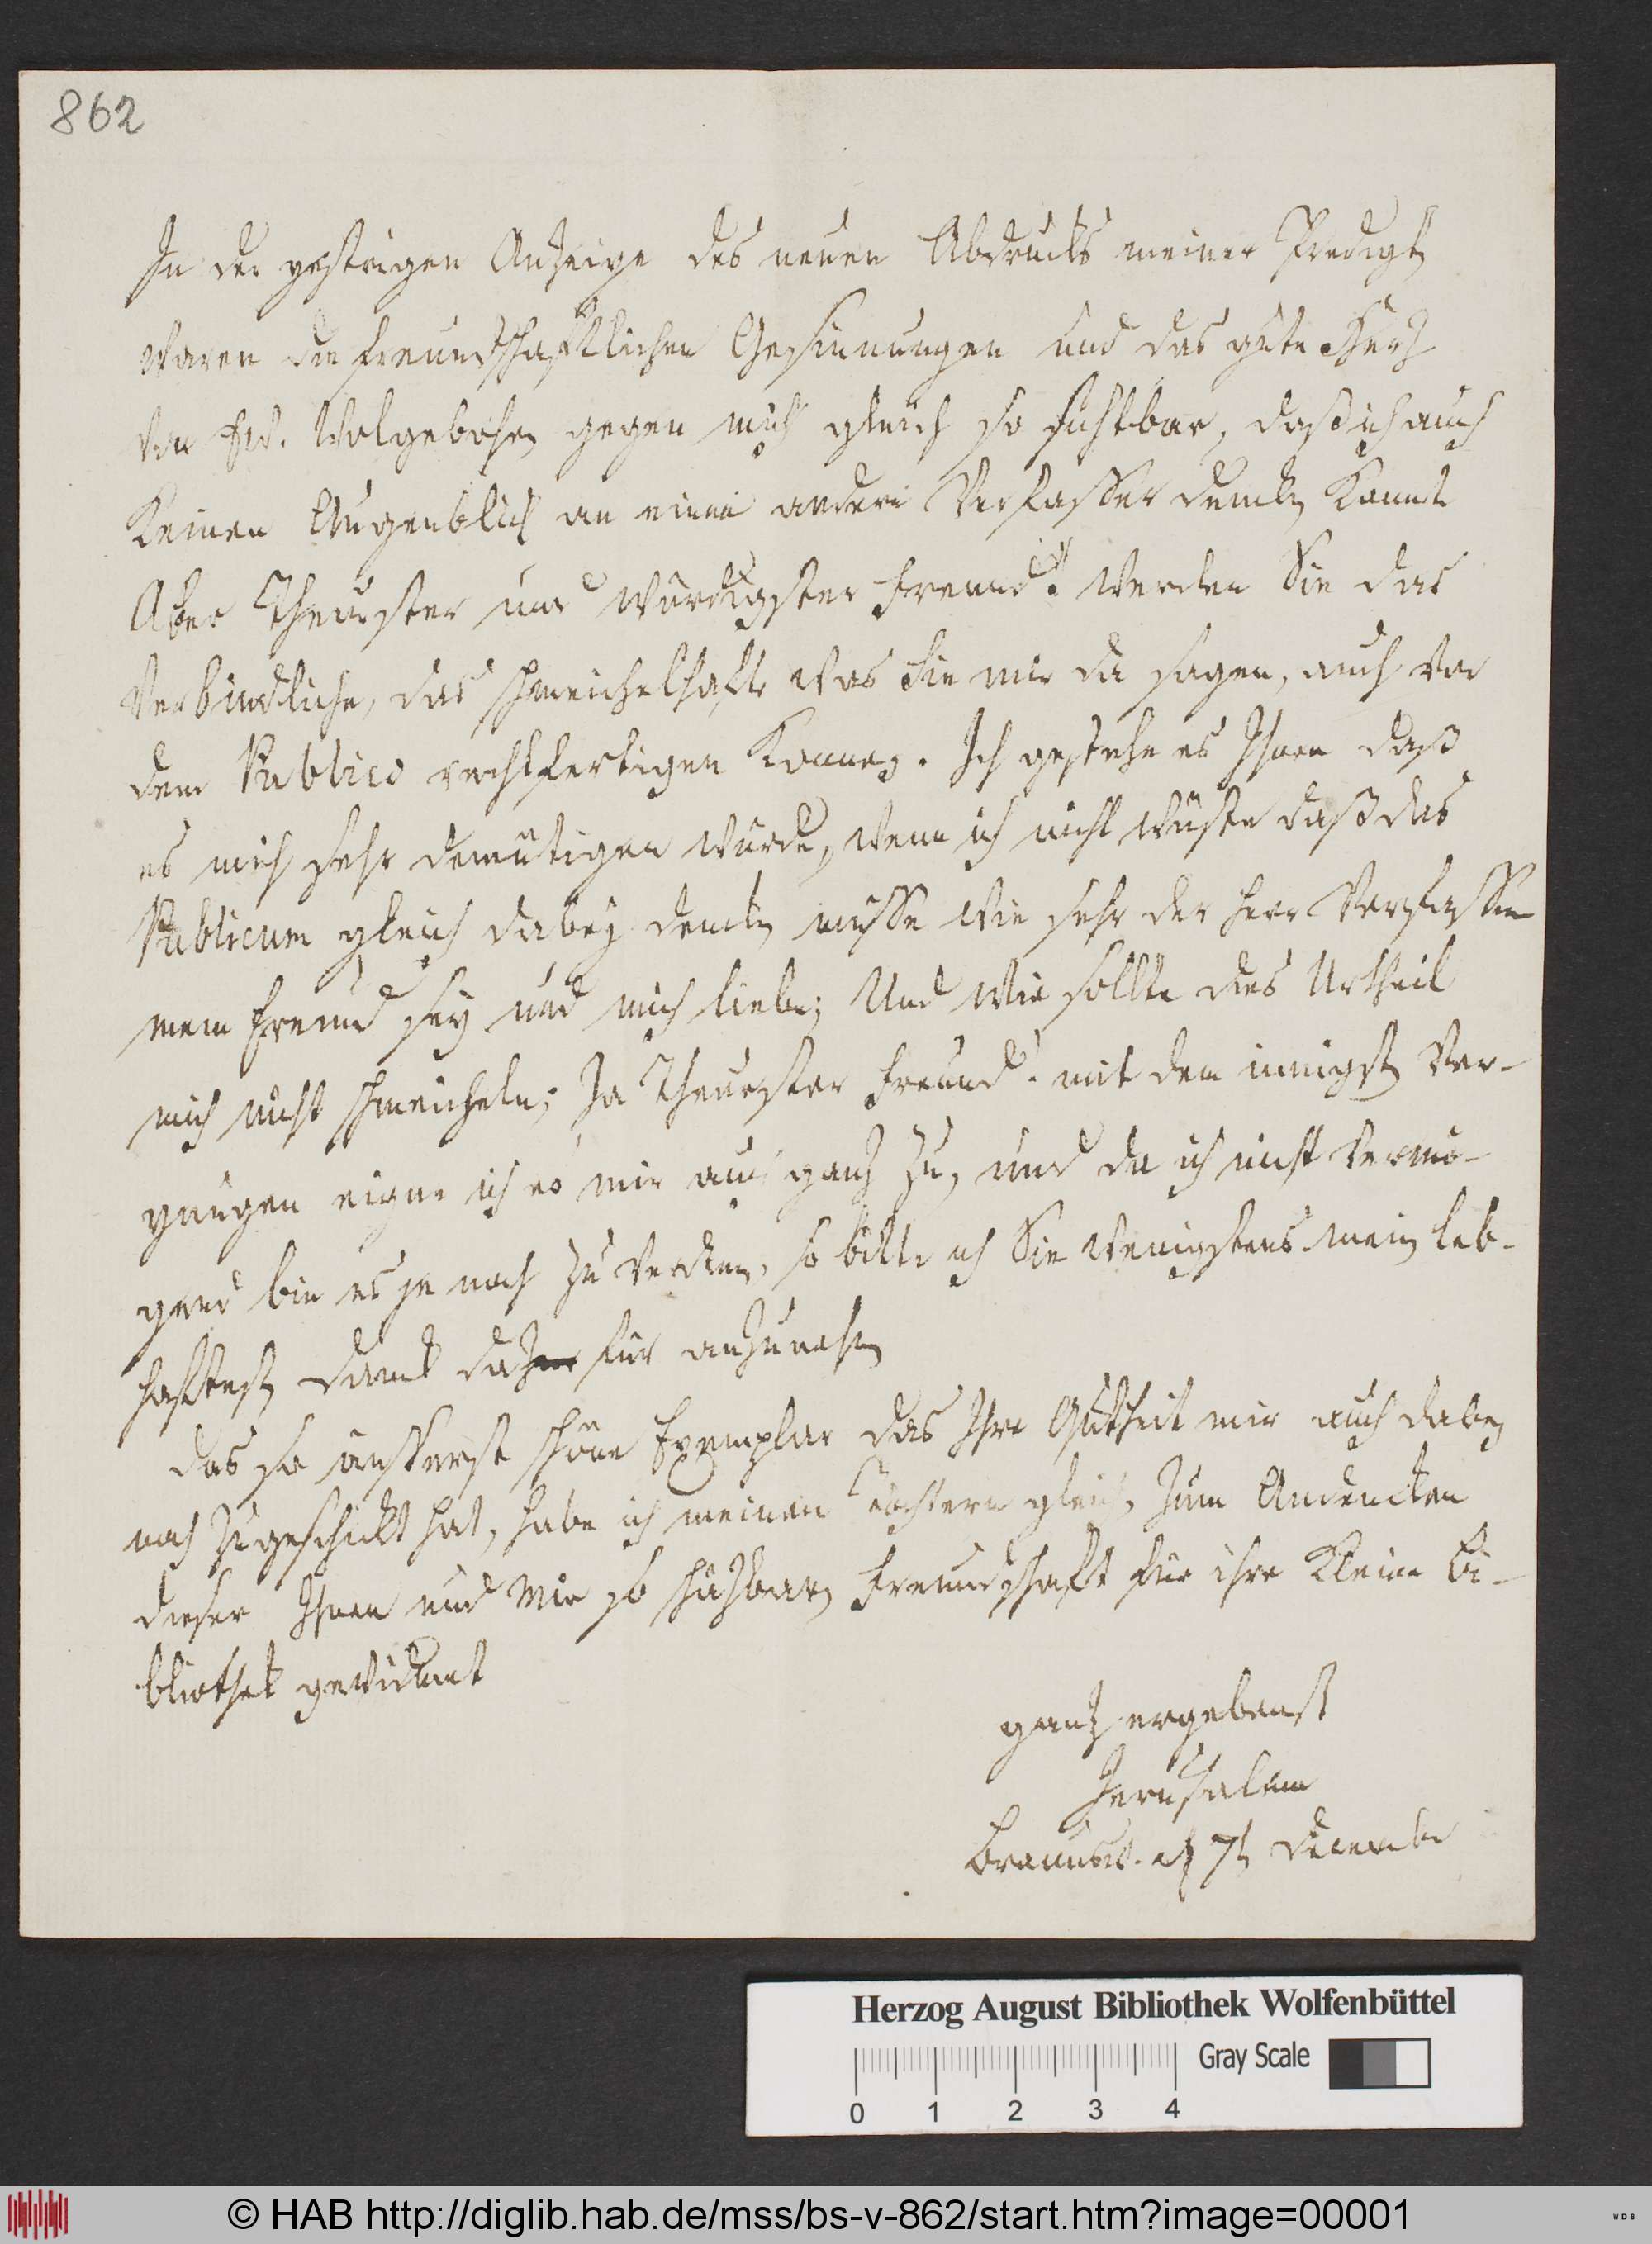 862
In der gestrigen Anzeige des neuen Abdrucks meiner Predigten
waren die freundschaftlichen Gesinnungen und das gute Herz
von Ew. Wolgebohren gegen mich gleich so sichtbar, daß ich auch
keinen Augenblick an einen andern Verfasser denken konnte
Aber Theurster und würdigster Freund! werden Sie das
Verbindliche, das schmeichelhafte was Sie mir da sagen, auch vor
dem Publico rechtfertigen können. Ich gestehe es Ihnen daß
es mich sehr demütigen würde, wenn ich nicht wüste daß das
Publicum gleich dabey denken müsse wie sehr der Herr Verfasser
mein Freund sey und mich liebe; Und wie sollte dies Urtheil
mich nicht schmeicheln; Ja Theuerster Freund. mit dem innigsten Ver-
gnügen eigne ich es mir auch ganz zu, und da ich nicht vermö-
gend bin es je noch zu verdienen, so bitte ich Sie wenigstens meinen leb-
haftesten Dank für anzunehmen
Das so äusserst schöne Exemplar das Ihre Gütheit mir auch dabey
noch zugeschickt hat, habe ich meinen Töchtern gleich, zum Andencken
dieser Ihnen und mir so schäzbaren Freundschaft für ihre kleine Bi-
bliothek gewidmet
ganz ergebenst
Jerusalem
Braunschw. d 7t December
Herzog August Bibliothek Wolfenbüttel
Gray Scale
0 1 2 3 4
© HAB http://diglib.hab.de/mss/bs-v-862/start.htm?image=00001
WDB